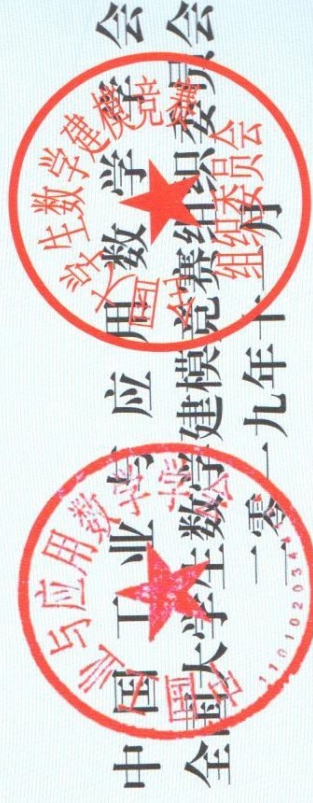 中国工业与应用数学学会
全国大学生数学建模竞赛组织委员会
二零一九年十一月
中国工业与应用数学学会
1101020344
全国大学生数学建模竞赛
组织委员会